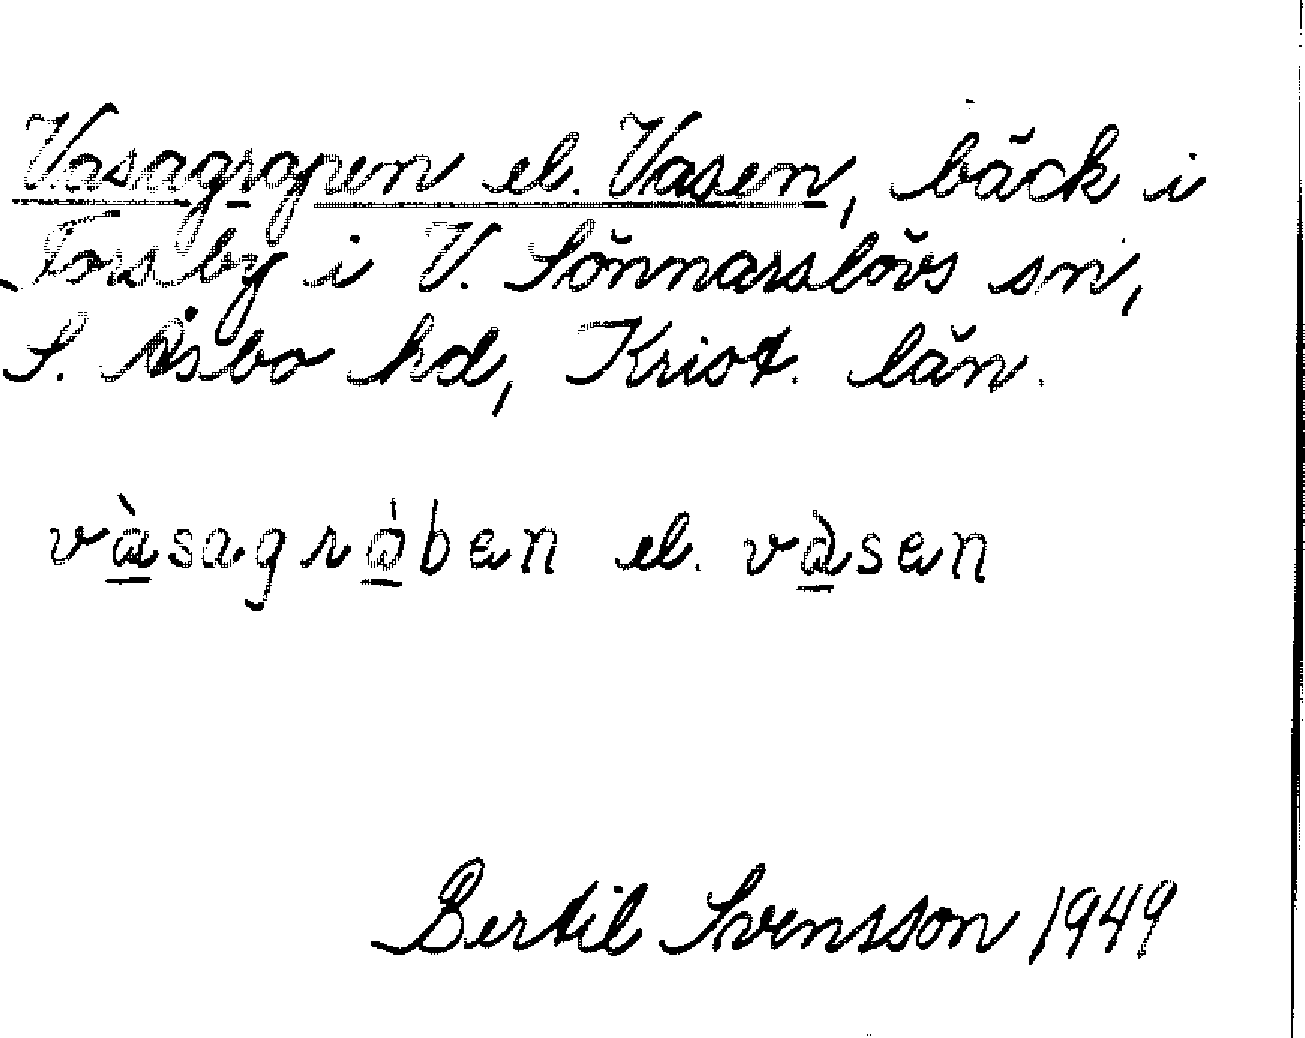 Vasagrapen el. Vasen, bäck i
Forsby i V. Sönnarslövs sn,
S. Åsbo hd, Krist. län.
vàsagràben el. vàsen
Bertil Svensson 1949